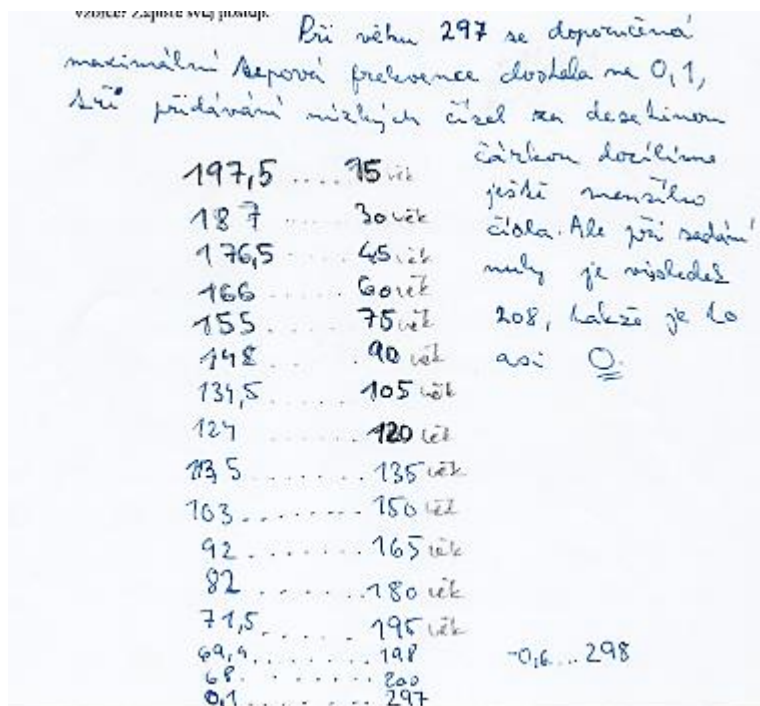 vzorce? Zapište svůj postup.
Při věku 297 se doporučená
maximální tepová frekvence dostala na 0,1,
při přidávání nízkých čísel za desetinnou
čárkou docílíme
ještě menšího
čísla. Ale při zadání
nuly je výsledek
208, takže je to
asi 0.
197,5 .... 15 věk
187 ..... 30 věk
176,5 ..... 45 věk
166 ...... 60 věk
155 ..... 75 věk
148 ..... 90 věk
134,5 ...... 105 věk
124 ...... 120 věk
113,5 ........ 135 věk
103 ........ 150 věk
92 ........ 165 věk
82 ....... 180 věk
71,5 ...... 195 věk
69,4 ........ 198
68 ........ 200
0,1 ........ 297
-0,6 ... 298